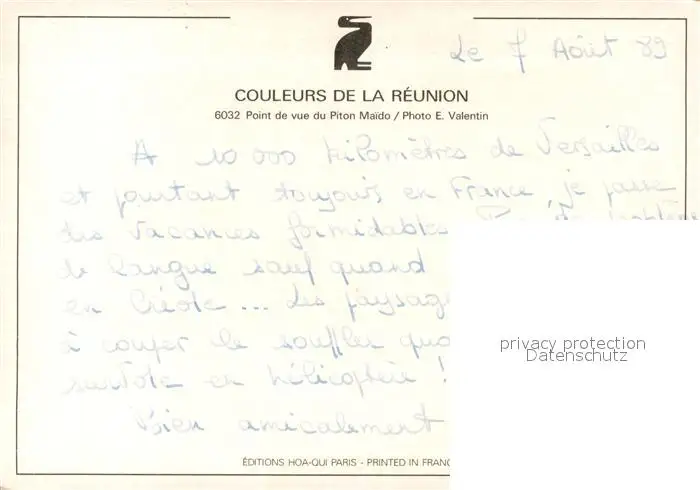 Le 7 Août 89
COULEURS DE LA RÉUNION
6032 Point de vue du Piton Maïdo / Photo E. Valentin
A 10 000 kilomètres de Versailles
et pourtant toujours en France, je passe
des vacances formidables. Pas de problème
de langue sauf quand
en Créole... Les paysag
à couper le souffler quo
survole en hélicoptère !
Bien amicalement
privacy protection
Datenschutz
ÉDITIONS HOA-QUI PARIS - PRINTED IN FRANC